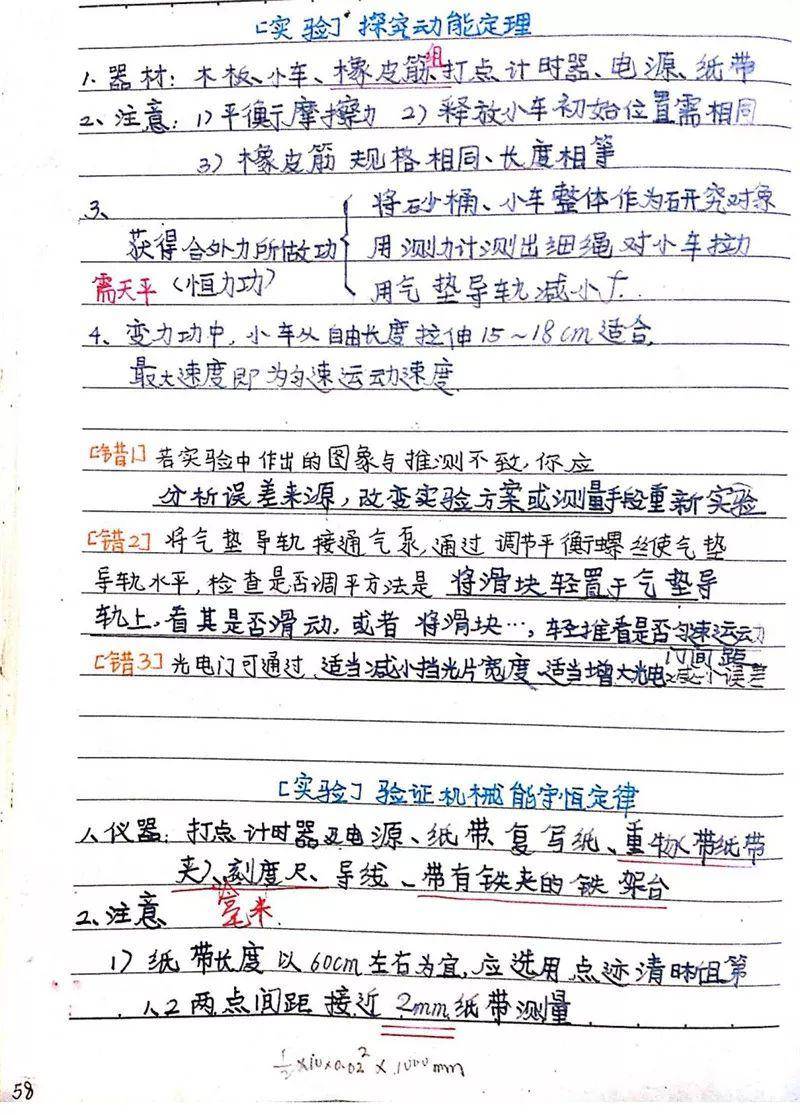 [实验] 探究动能定理
1、器材：木板、小车、橡皮筋组、打点计时器、电源、纸带
2、注意：1）平衡摩擦力 2）释放小车初始位置需相同
3）橡皮筋规格相同、长度相等
3、
将砂桶、小车整体作为研究对象
获得合外力所做功 用测力计测出细绳对小车拉力
需天平（恒力功） 用气垫导轨减小f.
4、变力功中，小车从自由长度拉伸15～18cm适合，
最大速度即为匀速运动速度
[错1] 若实验中作出的图象与推测不致，你应
分析误差来源，改变实验方案或测量手段重新实验
[错2] 将气垫导轨接通气泵，通过调节平衡螺丝使气垫
导轨水平，检查是否调平方法是 将滑块轻置于气垫导
轨上，看其是否滑动，或者 将滑块…，轻推看是否匀速运动
[错3] 光电门可通过 适当减小挡光片宽度、适当增大光电
门间距
减小误差
[实验] 验证机械能守恒定律
1、仪器：打点计时器及电源、纸带、复写纸、重物（带纸带
夹）、刻度尺、导线、带有铁夹的铁架台
毫米
2、注意
1）纸带长度以60cm左右为宜，应选用点迹清晰但第
1、2两点间距接近2mm纸带测量
1/2×10×0.02²×1000mm
58